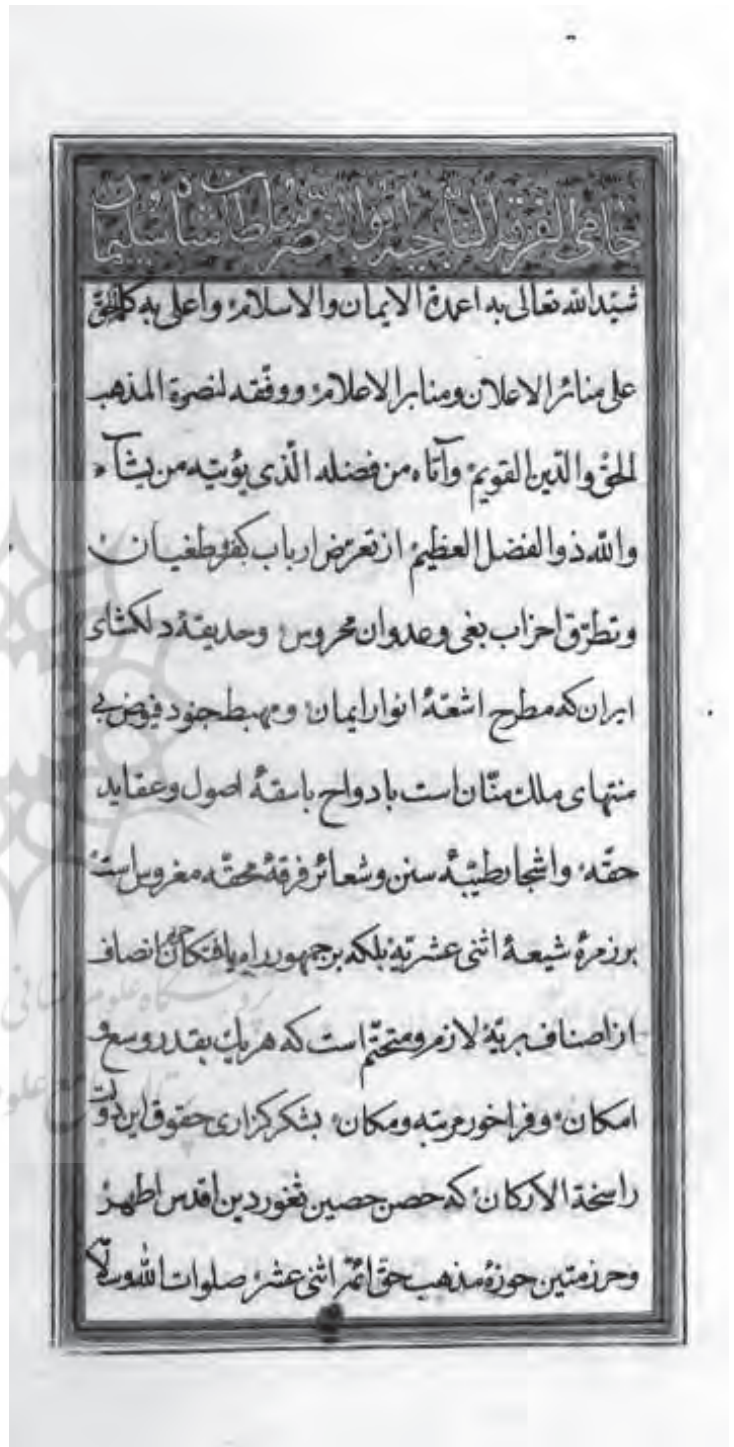 حامی الفرقه الناجیه ابو النصر سلطان شاه سلیمان
شیّد الله تعالی به اعمدة الایمان والاسلام واعلی به کلمة الحق
علی منائر الاعلان ومنابر الاعلام ووفّقه لنصرة المذهب
الحق والدّین القویم وآتاه من فضله الّذی یؤتیه من یشآء
والله ذوالفضل العظیم از تعرّض ارباب کفر وطغیان
وتطرّق احزاب بغی وعدوان محروس وحدیقهٔ دلکشای
ایران که مطرح اشعّهٔ انوار ایمان ومهبط جنود فیوض بی
منتهای ملک منّان است بادواح باسقهٔ اصول وعقاید
حقّه واشجار طیّبهٔ سنن وشعائر فرقهٔ محقّه مغروس است
برزمرهٔ شیعهٔ اثنی عشریّه بلکه برجمهور راه یافتکان انصاف
از اصناف بریّه لازم ومتحتّم است که هریک بقدر وسع و
امکان وفراخور مرتبه ومکان بشکرکزاری حقوق این دولت
راسخة الارکان که حصن حصین ثغور دین اقدس اطهر
وحرز متین حوزهٔ مذهب حق ائمّهٔ اثنی عشر صلوات الله وسلامه
پژوهشگاه علوم انسانی